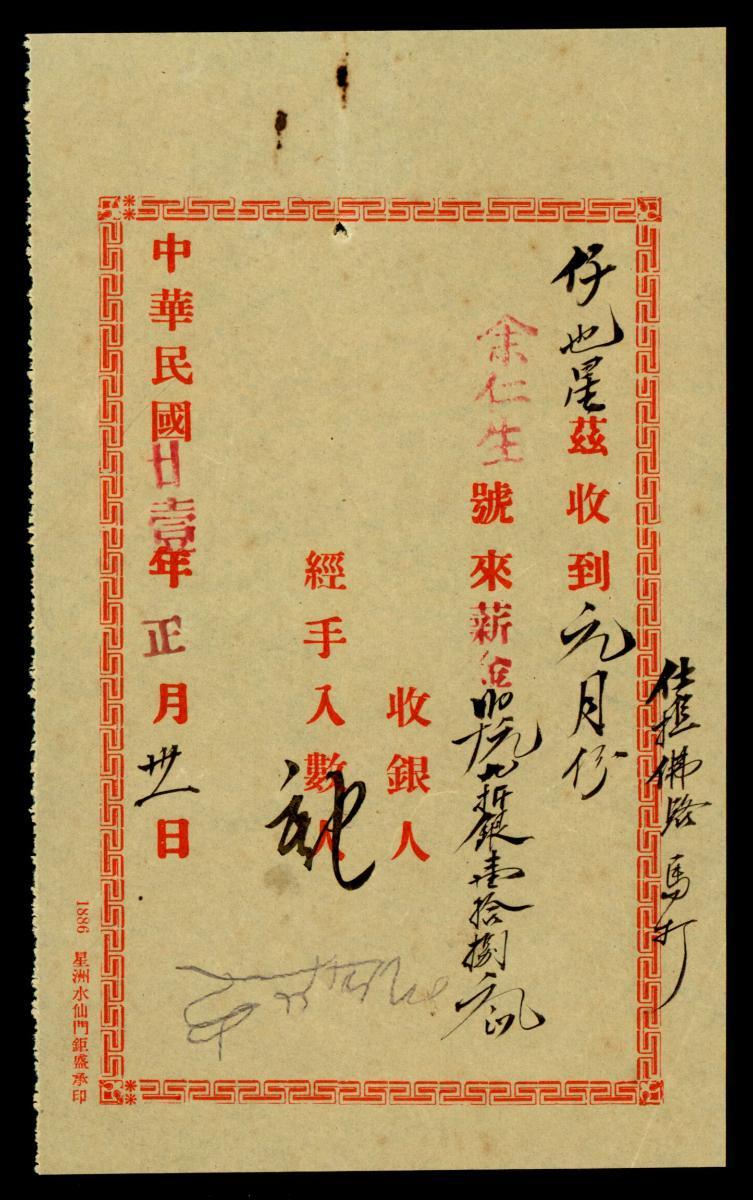 仕擔佛路馬打
仔也星茲收到元月份
余仁生號來薪金
九折銀壹拾捌
收銀人
經手入數人
中華民國廿壹年正月卅一日
1886 星洲水仙門鉅盛承印